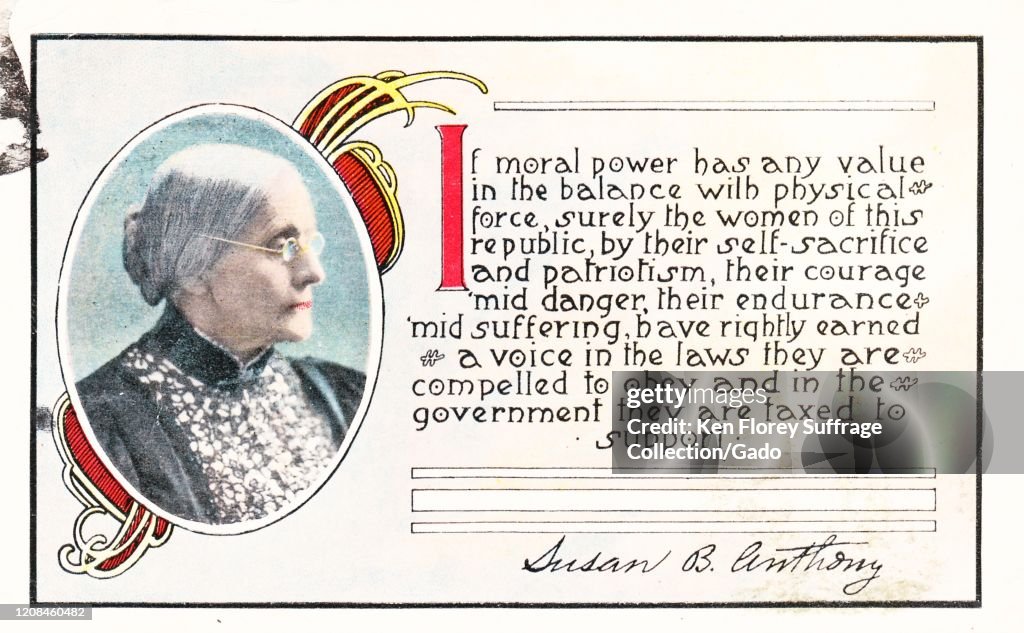 If moral power has any value
in the balance with physical
force, surely the women of this
republic, by their self-sacrifice
and patriotism, their courage
'mid danger, their endurance
'mid suffering, have rightly earned
a voice in the laws they are
compelled to obey and in the
government they are taxed to
support.
gettyimages
Ken Florey Suffrage
Collection/Gado
Susan B. Anthony
1208460482